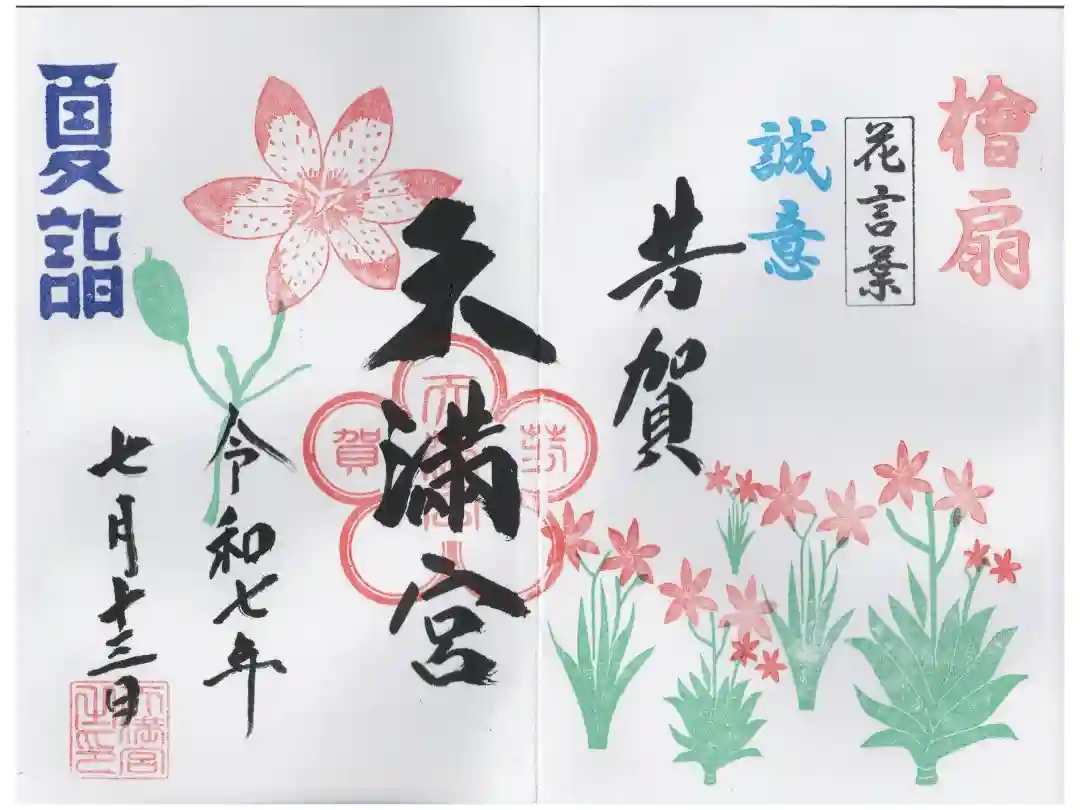 檜扇
花言葉
誠意
芳賀
天満宮
芳
賀
令和七年
七月十三日
天満宮
之印
夏詣